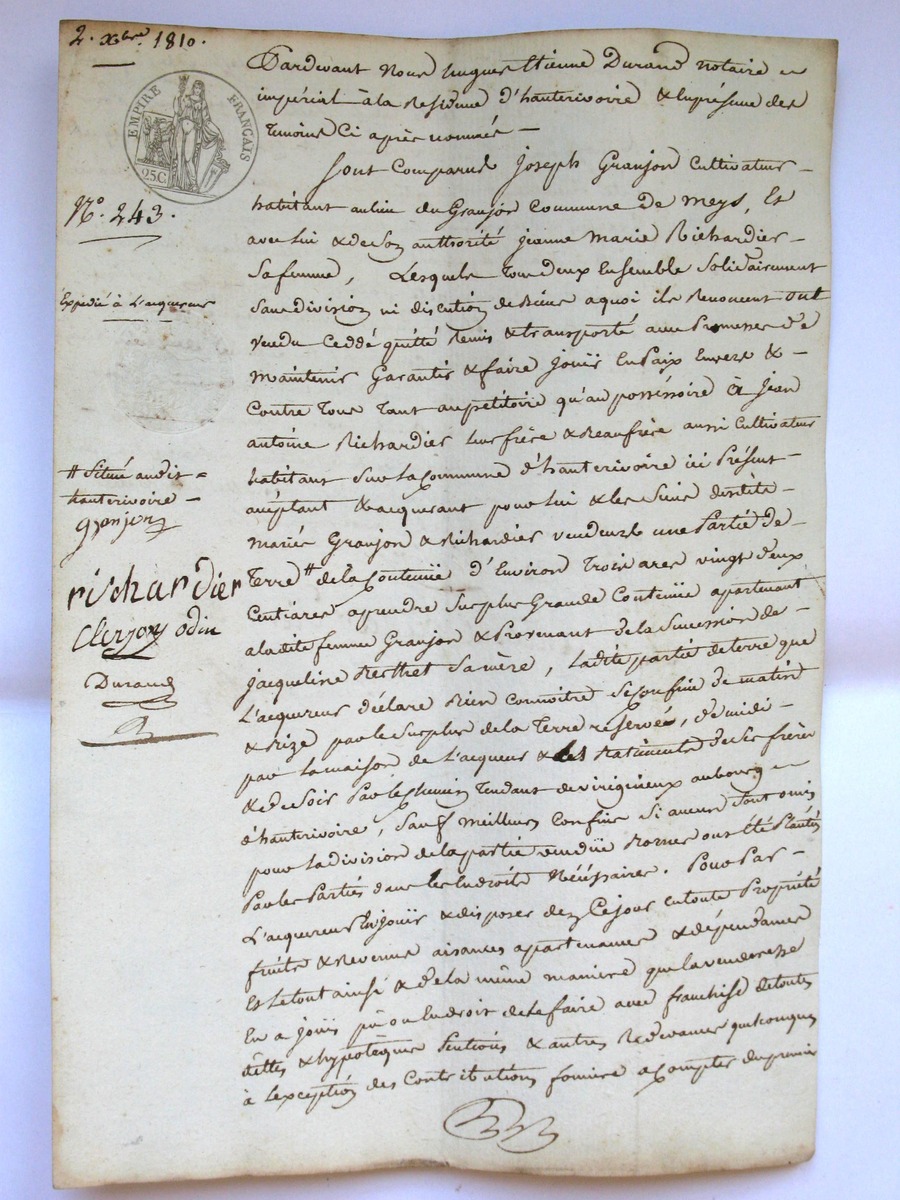 2. xbre. 1810.
EMPIRE FRANÇAIS
25C.
No. 243.
Expedié à L'acquereur
# Situé audit =
hauterivoire -
granjon
richardier
Clerjon odin
Durand
Pardevant Nous hugues Etienne Durand notaire
impérial à la Residence d'hauterivoire & En présence des
temoins Ci après nommés -
Sont Comparus Joseph Granjon Cultivateur -
habitant au lieu du Granjon Commune de Meys, Et
avec lui & de Son authorité jeanne Marie Richardier -
Sa femme, Lesquels Tous deux Ensemble Solidairement
Sans division ni discution de Biens a quoi ils Renoncent ont
Vendu Ceddé quitté Remis & transporté avec Promesse de
Maintenir Garantir & faire jouir En Paix Envers & -
Contre Tous Tant au pétitoire qu'au posséssoire à Jean
antoine Richardier leur frère & Beaufrère aussi Cultivateur
habitant Sur La Commune d'hauterivoire ici Présent -
acceptant & acquerant pour lui & les Siens desdits
Mariés Granjon & Richardier vendeurs une Partie de -
Terre # de la Contenue d'Environ Trois ares vingt deux
Centiares a prendre Sur plus Grande Contenue apartenant
a ladite femme Granjon & Provenant de la Succession de -
jacqueline Berthet Sa mère, Ladite partie de terre que
L'acquereur déclare Bien Connoitre Se Confine de matin
& Bize par le Surplus de la Terre réservée, de midi -
par La maison de L'acquereur & les Batiments de Ses frères
& de Soir Par le Chemin Tendant de virigneux au bourg
d'hauterivoire, Sauf meilleurs Confins Si aucuns Sont omis
pour La division de la partie vendue Bornes ont été Plantés
Par les Parties dans les Endroits Nécéssaires. Pour Par -
L'acquereur En jouir & disposer dez Ce jour en toute Propriété
fruits & Revenus aisances apartenances & dépendances
Et le tout ainsi & de la même maniere que la venderesse
En a jouis pu ou En droit de le faire avec franchise de toutes
dettes & hypoteques Pentions & autres Redevances quelconques
à l'exception des Contributions fonciere a Compter du premier